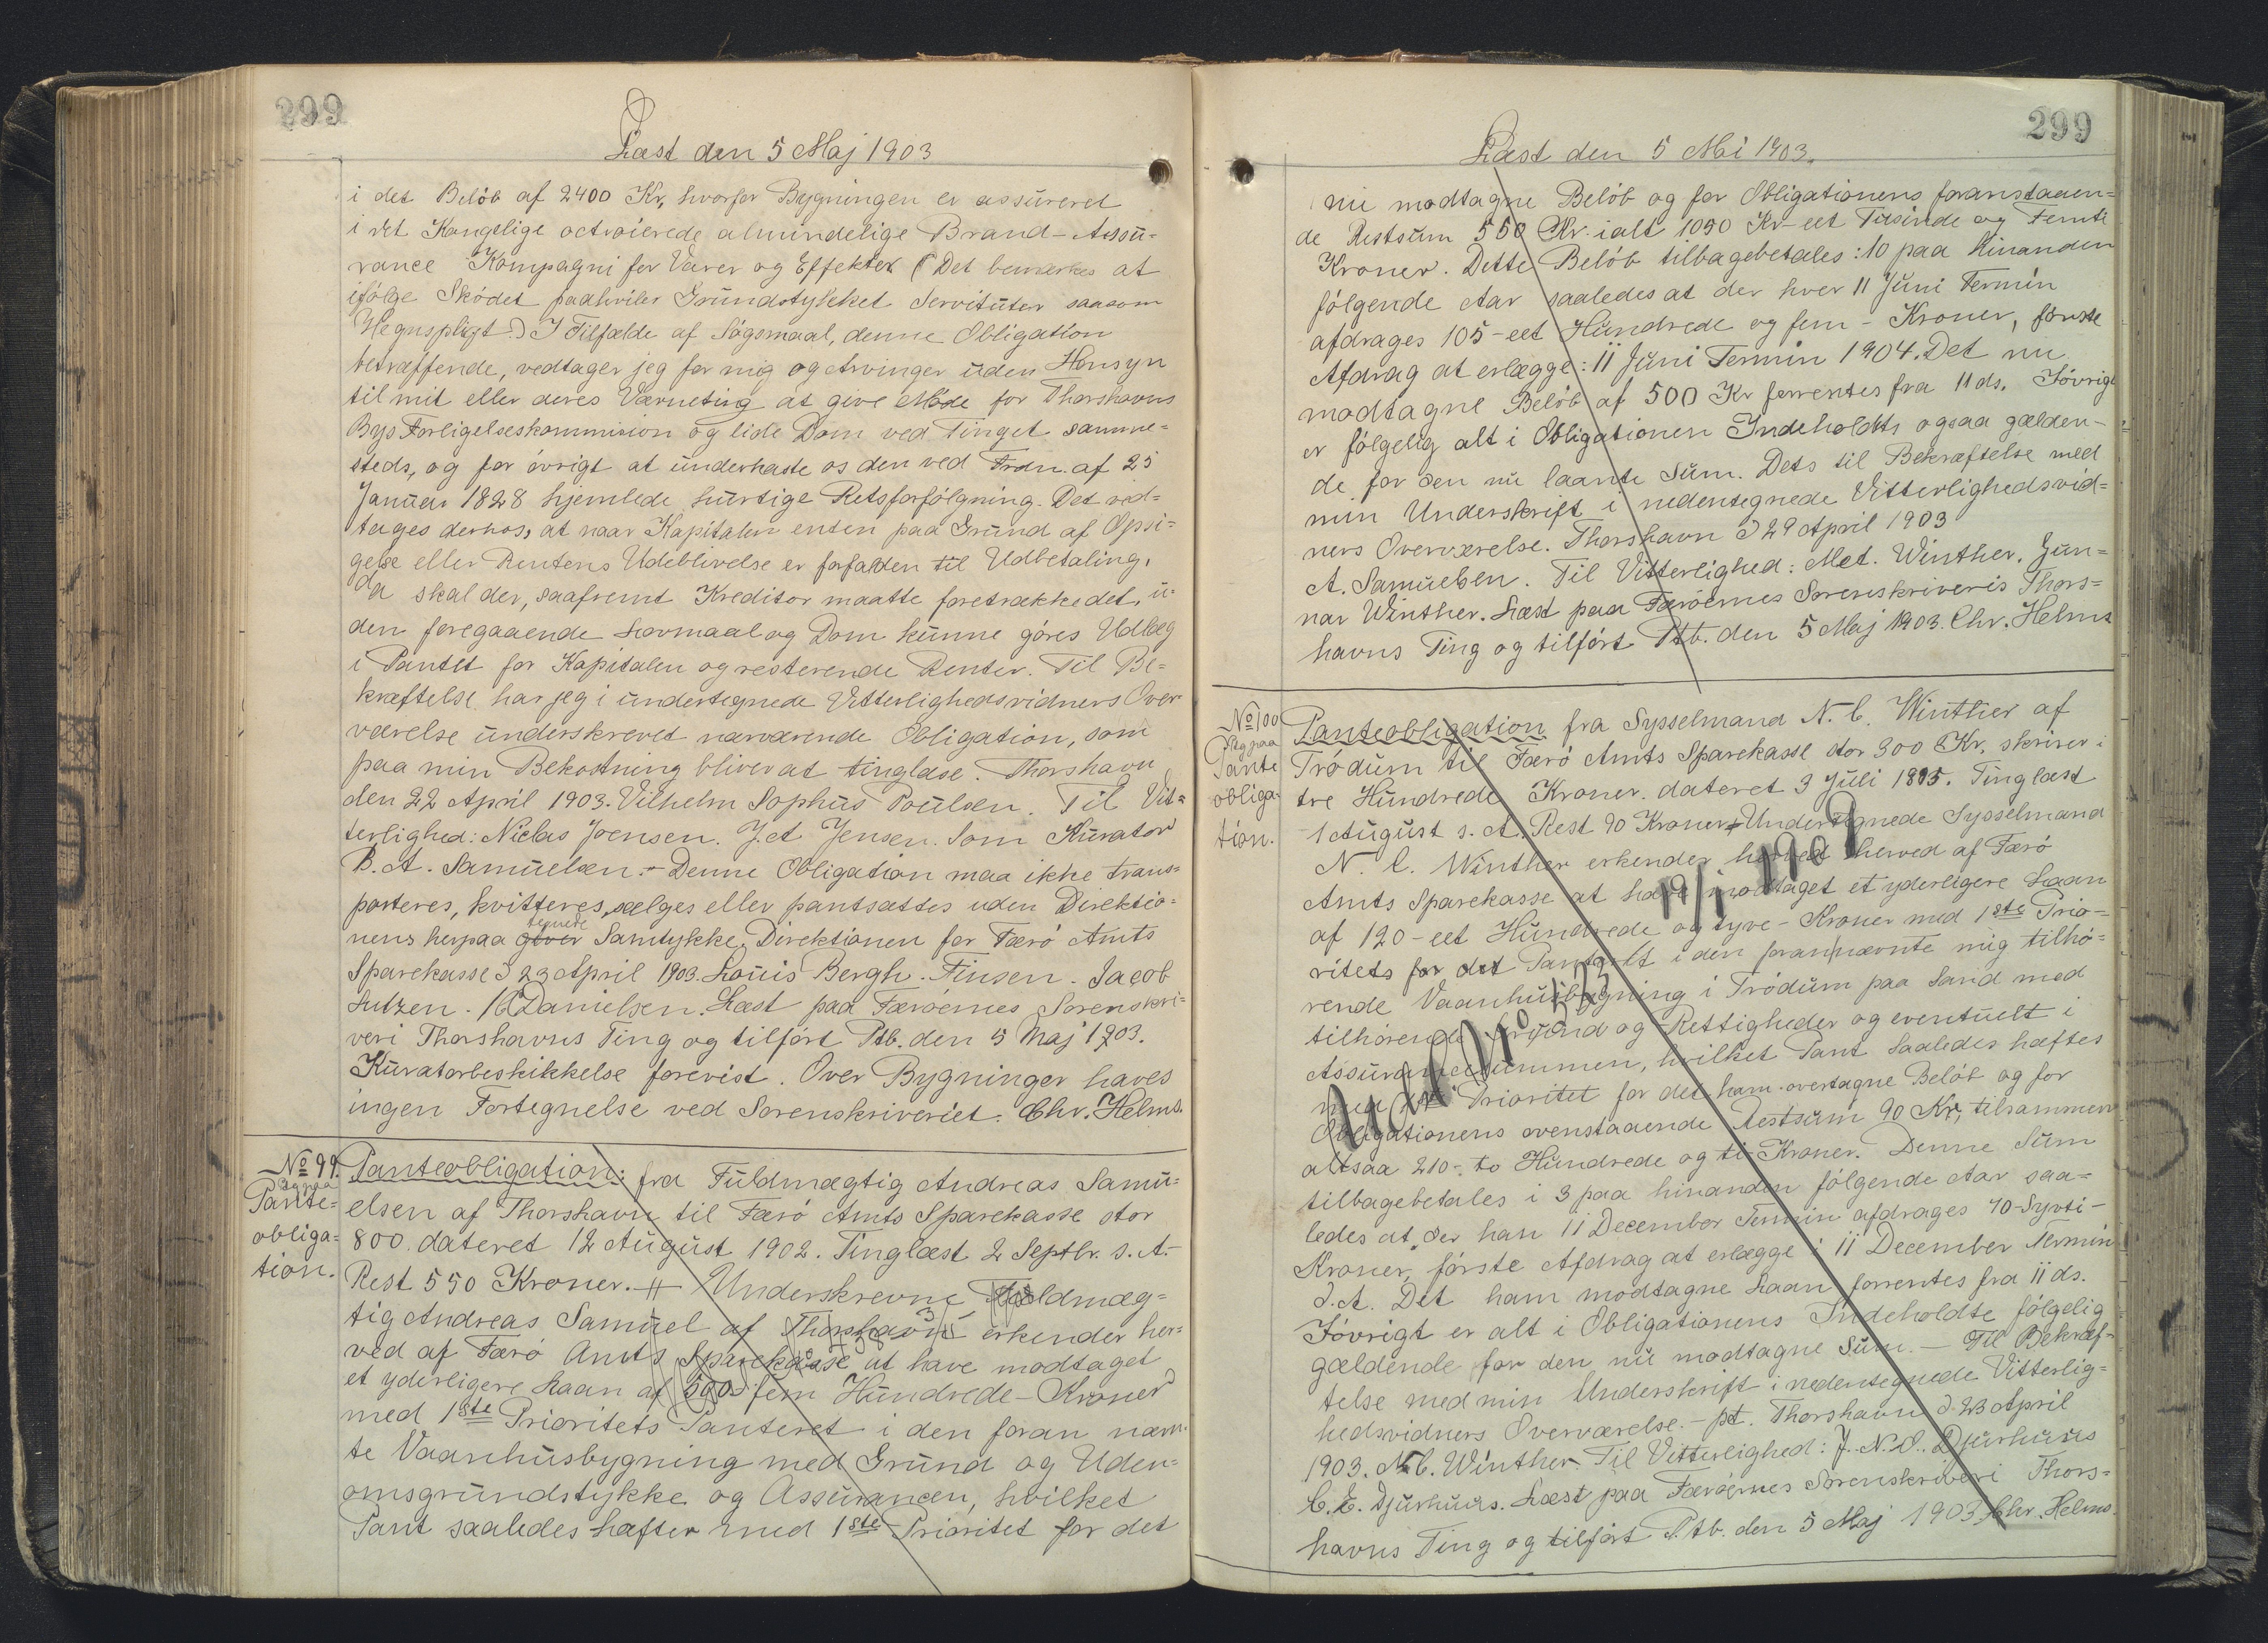 299
Læst den 5 Maj 1903
i det Beløb af 2400 Kr, hvorfor Bygningen er assureret
i det Kongelige octroierede almindelige Brand-Assu-
rance Kompagni for Varer og Effekter (Det bemærkes at
ifølge Skødet paahviler Grundstykket Servituter saasom
Hegnspligt.) I Tilfælde af Søgsmaal, denne Obligation
betræffende, vedtager jeg for mig og Arvinger uden Hensyn
til mit eller deres Værneting at give Møde for Thorshavns
Bys Forligelseskommision og lide Dom ved Tinget samme-
steds, og for øvrigt at underkaste os den ved Frdn. af 25
Januar 1828 hjemlede hurtige Retsforfølgning. Det ved=
tages derhos, at naar Kapitalen enten paa Grund af Opsi=
gelse eller Rentens Udeblivelse er forfalden til Udbetaling,
da skal der, saafremt Kreditor maatte foretrække det, u=
den foregaaende Lovmaal og Dom kunne gøres Udlæg
i Pantet for Kapitalen og resterende Renter. Til Be=
kræftelse har jeg i undertegnede Vitterlighedsvidners Over-
værelse underskrevet nærværende Obligation, som
paa min Bekostning bliver at tinglæse. Thorshavn
den 22 April 1903. Vilhelm Sophus Poulsen. Til Vit=
terlighed: Niclas Joensen. J. A Jensen. Som Kurator
B. A. Samuelsen. - Denne Obligation maa ikke trans-
porteres, kvitteres, sælges eller pantsættes uden Direktio=
nens herpaa tegnede Samtykke. Direktionen for Færø Amts
Sparekasse d 23 April 1903. Louis Bergh. Finsen. Jacob
Lutzen. Danielsen. Læst paa Færøernes Sorenskri-
veri Thorshavns Ting og tilført Ptb. den 5 Maj 1903.
Kuratorbeskikkelse forevist. Over Bygninger haves
ingen Fortegnelse ved Sorenskriveriet. Chr. Helms.
No 99. Panteobligation: fra Fuldmægtig Andreas Samu=
Paategn paa
Pante=
obliga=
tion.
elsen af Thorshavn til Færø Amts Sparekasse stor
800. dateret 12 August 1902. Tinglæst 2 Septbr. s. A.-
Rest 550 Kroner. # Underskrevne Fuldmæg=
tig Andreas Samuel af Thorshavn erkender her=
ved af Færø Amts Sparekasse at have modtaget
et yderligere Laan af 500 fem Hundrede - Kroner
med 1ste Prioritets Panteret i den foran nævn-
te Vaanhusbygning med Grund og Uden=
omsgrundstykke og Assurancen, hvilket
Pant saaledes hæfter med 1ste Prioritet for det
299
Læst den 5 Mai 1903.
nu modtagne Beløb og for Obligationens foranstaaen=
de Restsum 550 Kr. ialt 1050 Kr - eet Tusinde og Femti
Kroner. Dette Beløb tilbagebetales: 10 paa hinanden
følgende Aar saaledes at der hver 11 Juni Termin
afdrages 105 - eet Hundrede og fem - Kroner, første
Afdrag at erlægge: 11 Juni Termin 1904. Det nu
modtagne Beløb af 500 Kr forrentes fra 11 ds. Iøvrigt
er følgelig alt i Obligationen Indeholdte ogsaa gælden-
de for den nu laante Sum. Dets til Bekræftelse med
min Underskrift i nedentegnede Vitterlighedsvid=
ners Overværelse. Thorshavn d 29 April 1903
A. Samuelsen. Til Vitterlighed: Met. Winther. Gun=
nar Winther. Læst paa Færøernes Sorenskriveris Thors=
havns Ting og tilført Ptb. den 5 Maj 1903. Chr. Helms
No 100 Panteobligation fra Sysselmand N. C. Winther af
Paategn paa
Pante
obliga-
tion.
Trødum til Færø Amts Sparekasse stor 300 Kr. skriver i
tre Hundrede Kroner. dateret 3 Juli 1895. Tinglæst
1 August s. A. Rest 90 Kroner # Undertegnede Sysselmand
N. C. Winther erkender herved herved af Færø
Amts Sparekasse at have modtaget et yderligere Laan
af 120 - eet Hundrede og tyve - Kroner med 1ste Prio-
ritets for det Panteret i den forannævnte mig tilhø=
rende Vaanhusbygning i Trødum paa Sand med
tilhørende Grund og Rettigheder og eventuelt i
Assurancesummen, hvilket Pant saaledes hæftes
med 1ste Prioritet for det ham overtagne Beløb og for
Obligationens ovenstaaende Restsum 90 Kr, tilsammen
altsaa 210 - to Hundrede og ti Kroner. Denne Sum
tilbagebetales i 3 paa hinanden følgende Aar saa=
ledes at der han 11 December Termin afdrages 70-Syvti-
Kroner, første Afdrag at erlægge i 11 December Termin
d. A. Det ham modtagne Laan forrentes fra 11 ds.
Iøvrigt er alt i Obligationens Indeholdte følgelig
gældende for den nu modtagne Sum. - Til Bekræf-
telse med min Underskrift i nedentegnede Vitterlig=
hedsvidners Overværelse. - pt. Thorshavn d. 23 April
1903. N. C. Winther. Til Vitterlighed: J. N. O. Djurhuus
C. E. Djurhuus. Læst paa Færøernes Sorenskriveri Thors=
havns Ting og tilført Ptb. den 5 Maj 1903. Chr. Helms.